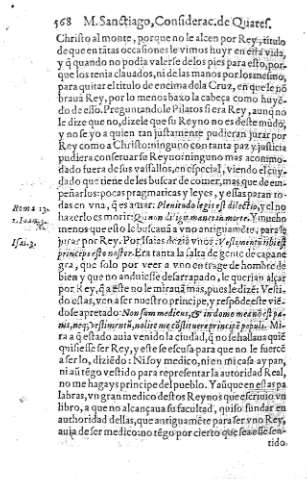 568 M. Sanctiago, Considerac. de Quares.
Christo al monte, porque no le alcen por Rey, titulo
de que en tãtas occasiones le vimos huyr en esta vida,
y q̃ quando no podia valerse de los pies para esto, por-
que los tenia clauados, ni de las manos por lo mesmo,
para quitar el titulo de encima de la Cruz, en que le nõ
braua Rey, por lo menos baxo la cabeça como huyẽ-
do de esso. Preguntandole Pilatos si era Rey, aunq̃ no
le dize que no, dizele que su Reyno no es deste mũdo,
y no se yo a quien tan justamente pudieran jurar por
Rey como a Christo: ninguno con tanta paz y justicia
pudiera conseruar su Reyno: ninguno mas acomo-
dado fuera de sus vassallos, en especial, viendo el cuy-
dado que tiene de les buscar de comer, mas que de em-
peñarlos: pocas pragmaticas y leyes, y essas paran to-
das en vna, q̃ es amar: Plenitudo legis est dilectio, y el no
Roma 13.
hazerlo es morir: Qui non diligit manet in morte. Y mucho
1. Ioan. 3.
menos que esto le buscauã a vno antiguamẽte, para le
jurar por Rey. Por Isaias dezia vno: Vestimentũ tibi est
Isai. 3.
princeps esto noster. Era tanta la falta de gente de capane
gra, que solo por veer a vno en trage de hombre de
bien y que no anduiesse desarrapado, le querian alçar
por Rey, q̃ a este no le mirauã mas, pues le dizẽ: Vesti-
do estas, ven a ser nuestro principe, y respõde este viẽ-
dose apretado: Non sum medicus, & in domo mea nõ est pa-
nis, neq; vestimentũ, nolite me cõstituere principẽ populi. Mi-
ra a q̃ estado auia venido la ciudad, q̃ no se hallaua quiẽ
quisiesse ser Rey, y este se escusa para que no le fuercẽ
a serlo, diziẽdo: Ni soy medico, ni en mi casa ay pan,
ni aũ tẽgo vestido para representar la autoridad Real,
no me hagays principe del pueblo. Ya q̃ue en estas pa
labras, vn gran medico destos Reynos que escriuio vn
libro, a que no alcançaua su facultad, quiso fundar en
authoridad dellas, que antiguamẽte para ser vno Rey,
auia de ser medico: no tẽgo por cierto que sea esse sen-
tido.